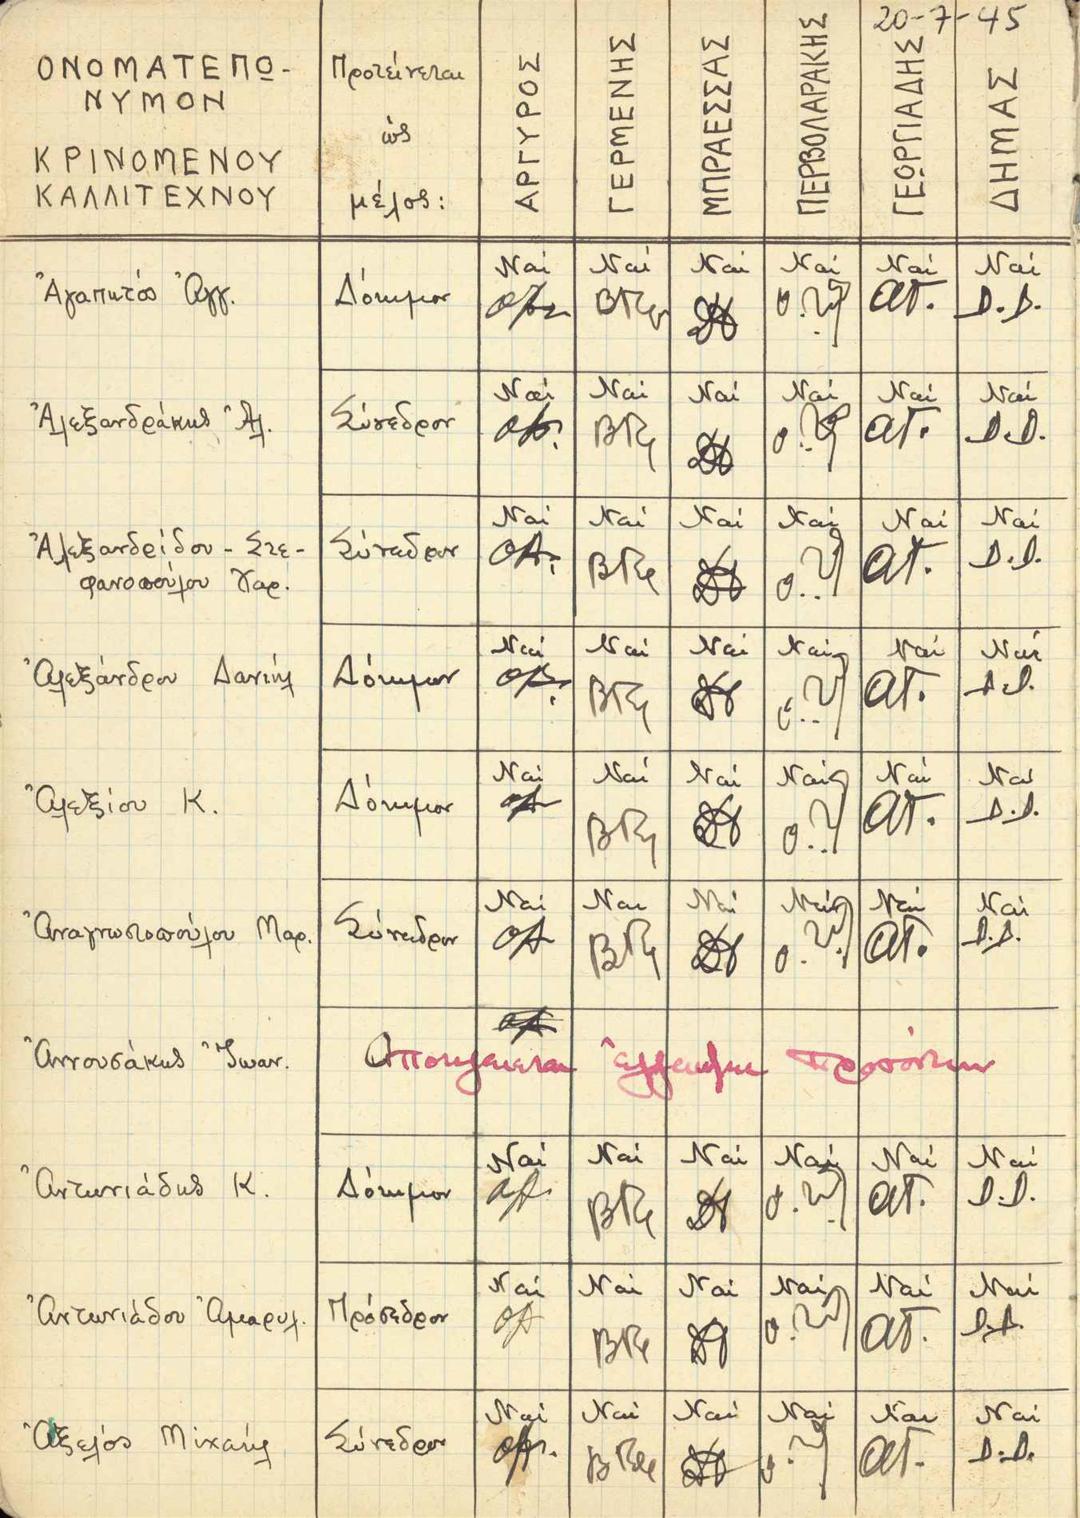 20-7-45
ΟΝΟΜΑΤΕΠΩ-
ΝΥΜΟΝ
ΚΡΙΝΟΜΕΝΟΥ
ΚΑΛΛΙΤΕΧΝΟΥ
Προτείνεται
ὡς
μέλος:
ΑΡΓΥΡΟΣ
ΓΕΡΜΕΝΗΣ
ΜΠΡΑΕΣΣΑΣ
ΠΕΡΒΟΛΑΡΑΚΗΣ
ΓΕΩΡΓΙΑΔΗΣ
ΔΗΜΑΣ
Ἀγαπητός Ἀγγ. Δόκιμον Ναί Ναί Ναί Ναί Ναί Ναί
ΑΓ. Δ.Δ.
Ἀλεξανδράκης Ἀλ. Σύνεδρον Ναί Ναί Ναί Ναί Ναί Ναί
ΑΓ. Δ.Δ.
Ἀλεξανδρίδου - Στε- Σύνεδρον Ναί Ναί Ναί Ναί Ναί Ναί
φανοπούλου Χαρ. ΑΓ. Δ.Δ.
Ἀλεξάνδρου Δανιήλ Δόκιμον Ναί Ναί Ναί Ναί Ναί Ναί
ΑΓ. Δ.Δ.
Ἀλεξίου Κ. Δόκιμον Ναί Ναί Ναί Ναί Ναί Ναί
ΑΓ. Δ.Δ.
Ἀναγνωστοπούλου Μαρ. Σύνεδρον Ναί Ναι Ναί Ναί Ναί Ναι
ΑΓ. Δ.Δ.
Ἀννουσάκης Ἰωαν. Αποκλείεται ἐλλείψει προσόντων
Ἀντωνιάδης Κ. Δόκιμον Ναί Ναί Ναί Ναί Ναί Ναί
ΑΓ. Δ.Δ.
Ἀντωνιάδου Ἀμαρυλ. Πρόσεδρον Ναί Ναί Ναί Ναί Ναί Ναί
ΑΓ. Δ.Δ.
Ἀξελός Μιχαήλ Σύνεδρον Ναί Ναί Ναί Ναί Ναι Ναί
ΑΓ. Δ.Δ.